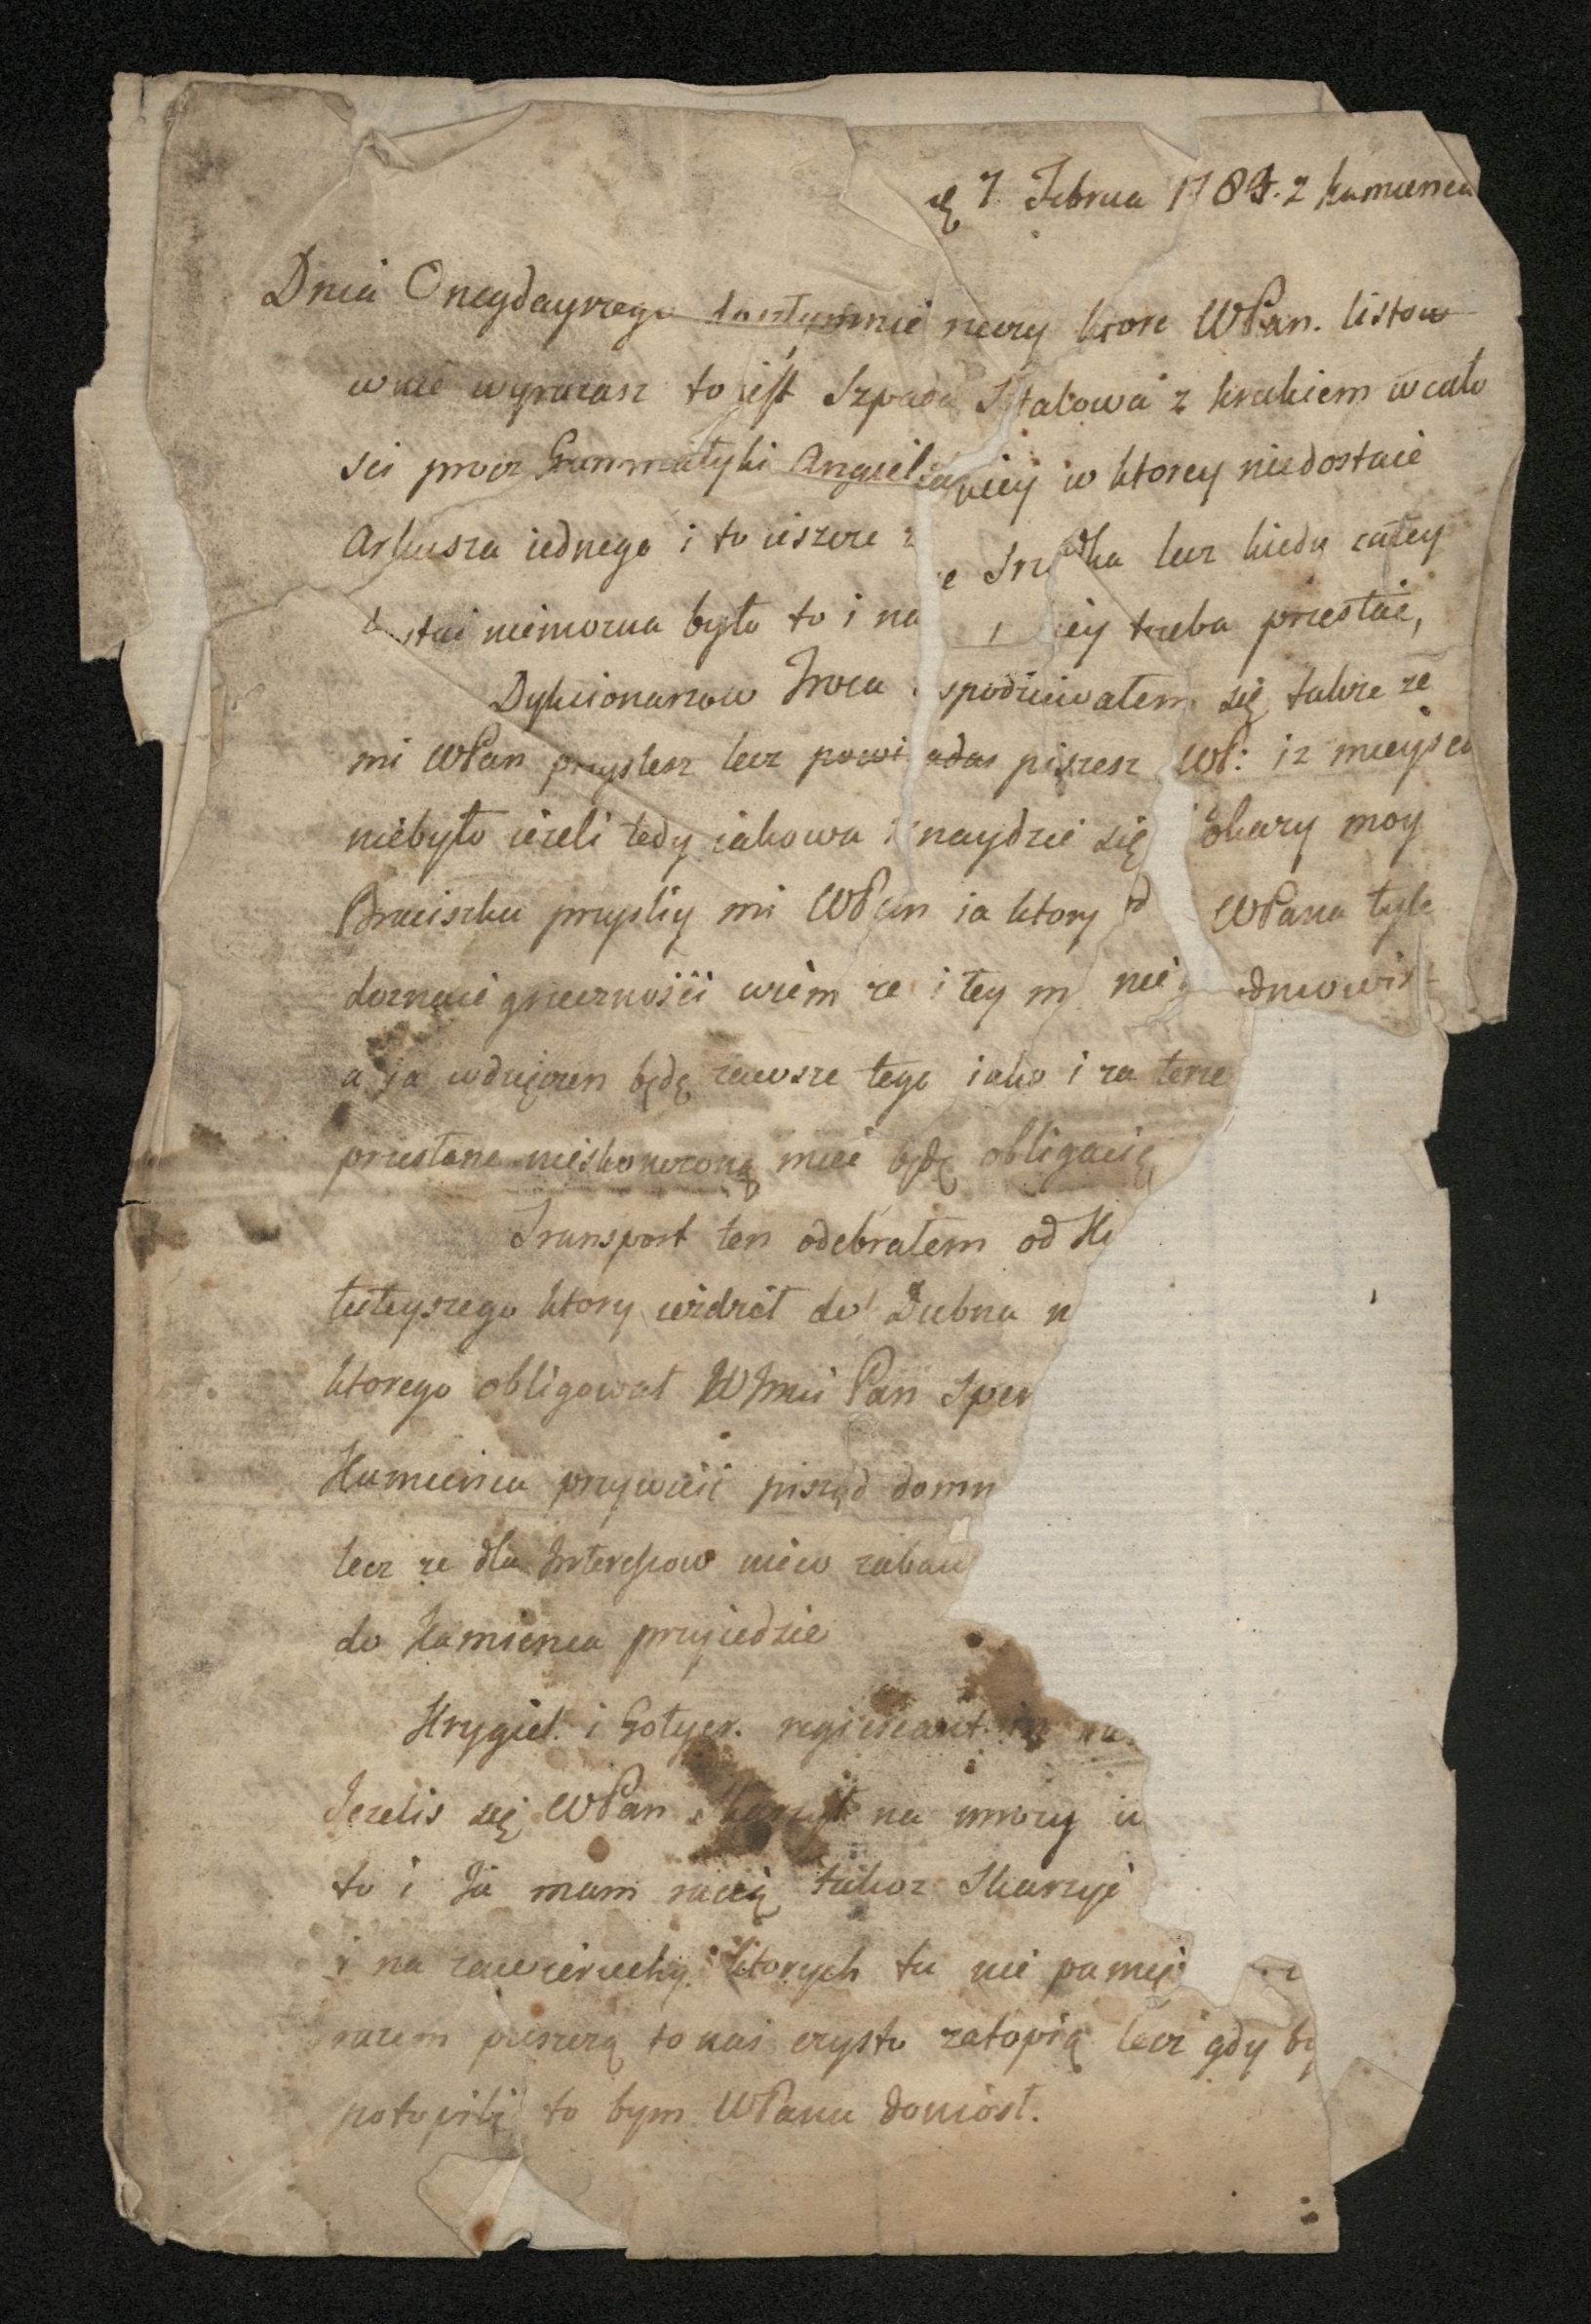 7 Februa 178 z Kamienca
Dnia Onegdayszego mnie rzeczy ktore WPan. listow
wnie wyrazasz to iest Szpada Stalowa z krukiem w cało
sci procz Grammatyki Angielskiey w ktorey niedostaie
Arkusza iednego i to ieszcze ze Srzodka lecz kiedy całey
niemozna było to i na iey trzeba przestać,
Dykcionarzow Troca spodziewałem się takze ze
mi WPan przyslesz lecz powiadas piszesz WP: iz mieysca
niebyło iezeli tedy iakowa znaydzie się okazy moy
Braciszku przysliy mi WPan ia ktory od WPana tyle
doznaie grzecznosci wiem ze i tey mi nie odmowis
a ia wdzięczen będę zawsze tego iako i za terz
przesłane nieskonczoną miec będę obligacię
Transport ten odebrałem od K
tuteyszego ktory iezdził do Dubna n
ktorego obligował WJmci Pan Sper
Kamienca przywieść pisząd domn
lecz ze dla Interessow zabaw
do Kamienca przyiedzie
Krygiel. i Gołyer.
Jezelis się WPan Skarzył na mrozy u
to i Ja mam racią takoz Skarzyć
i na zawieruchy ktorych tu nie pamię
razem puszczą to nas czysto zatopią lecz gdy by
potopili to bym WPanu doniosł.